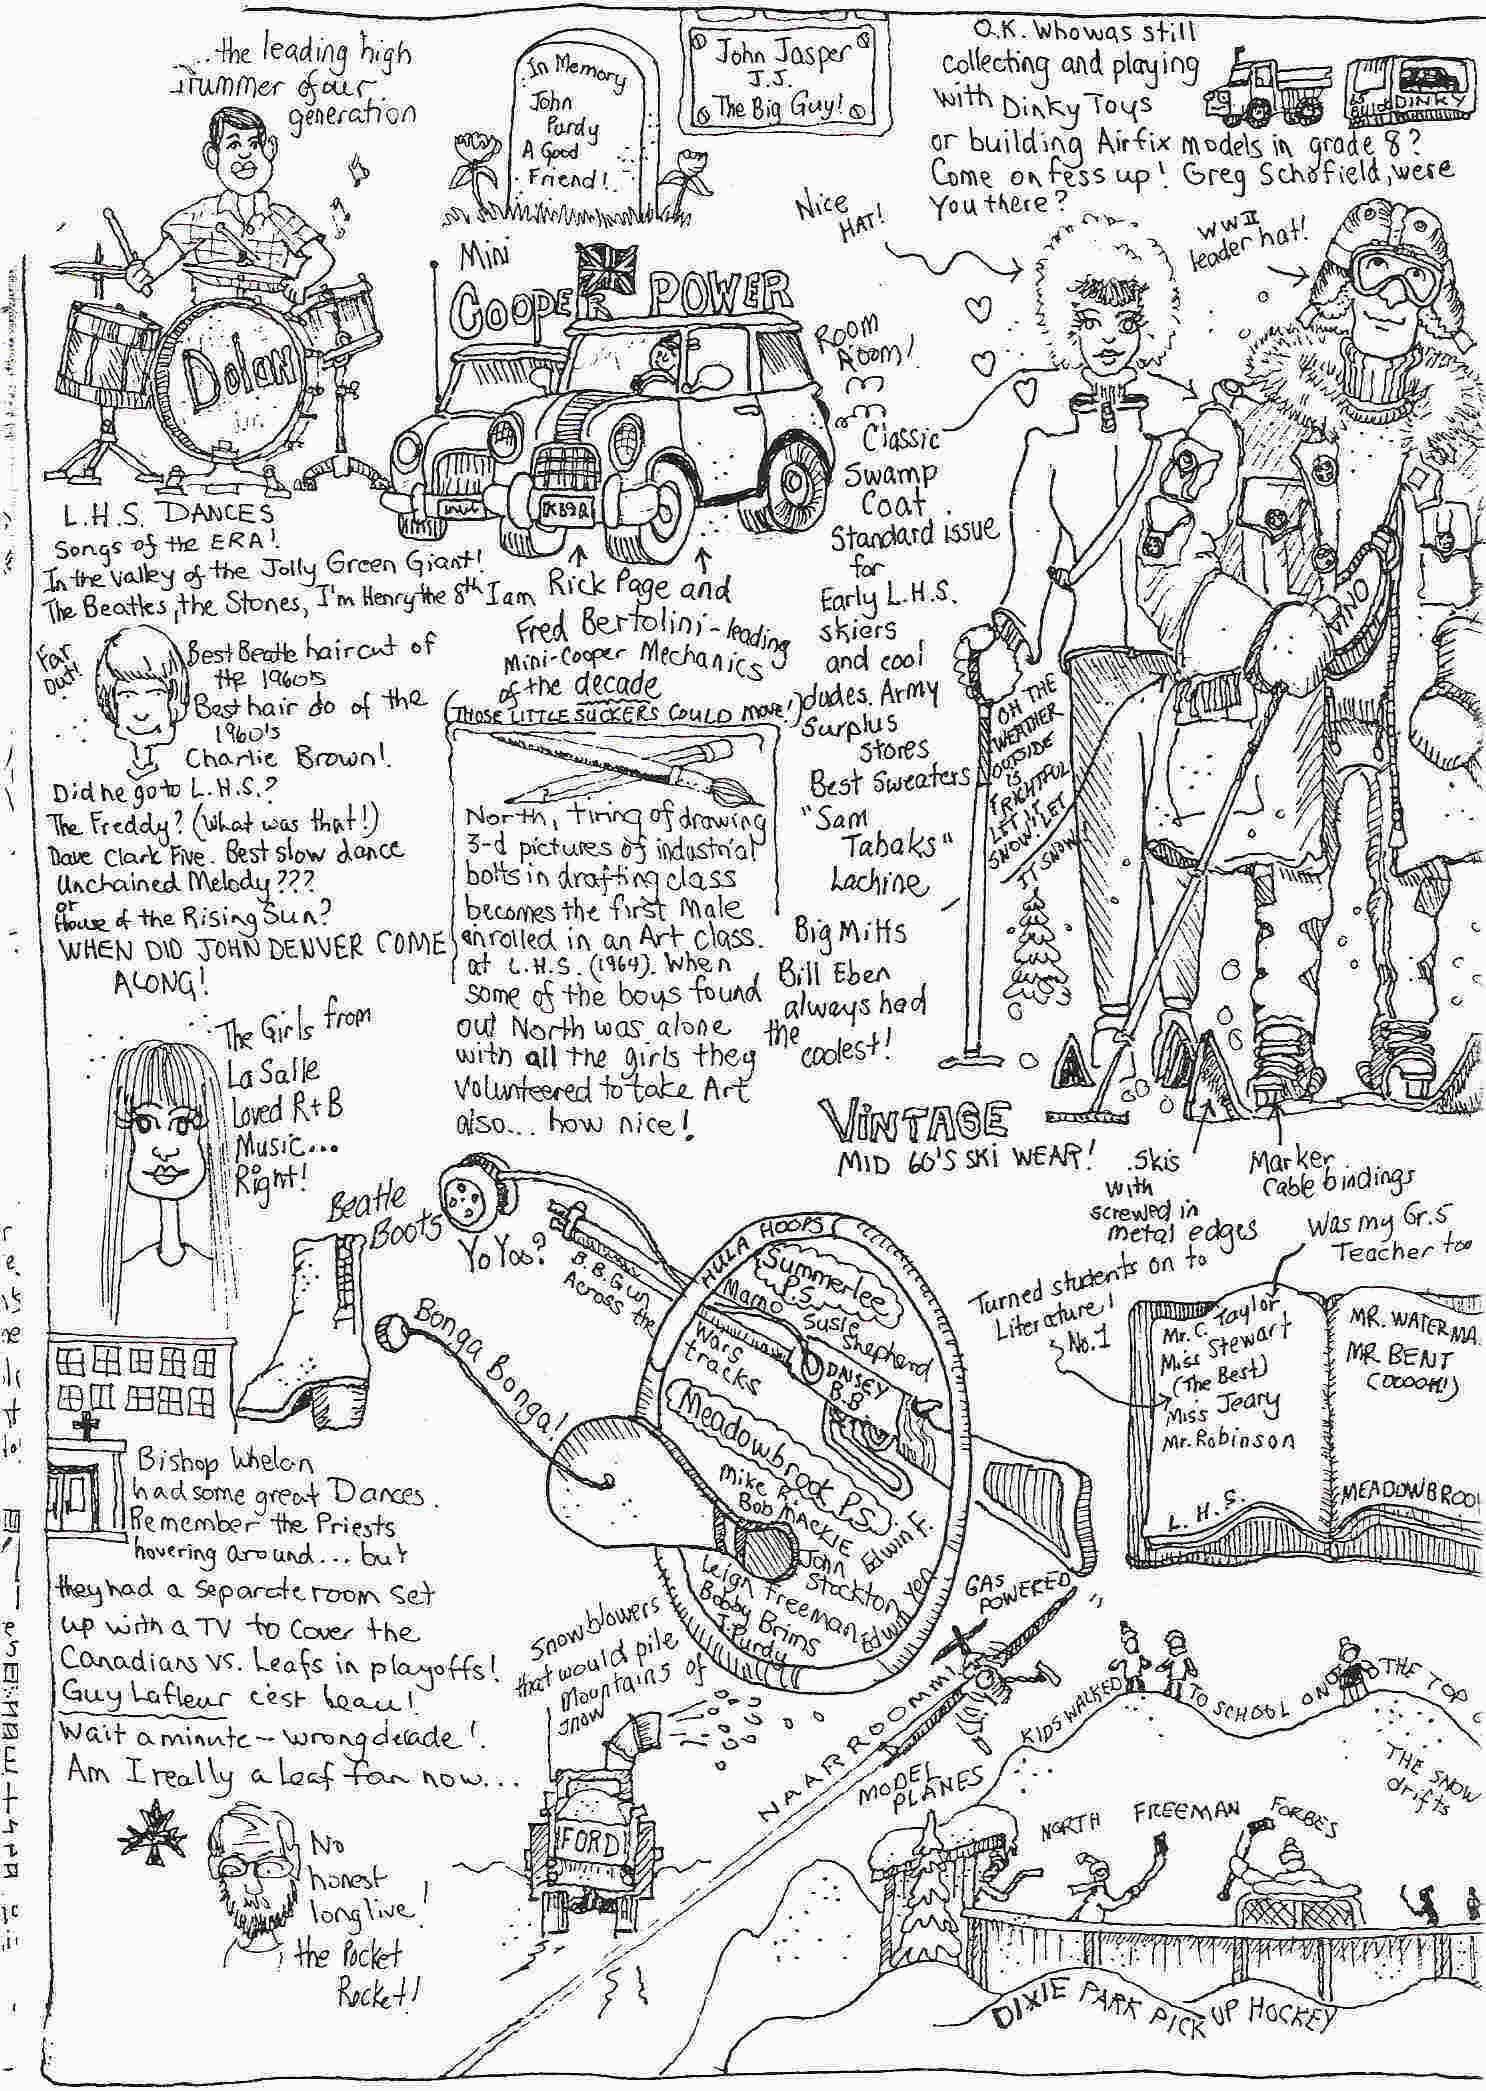 ...the leading high
drummer of our
generation
Dolan
Jr.
In Memory
John
Purdy
A Good
Friend!
John Jasper
J.J.
The Big Guy!
O.K. Who was still
collecting and playing
with Dinky Toys
or building Airfix models in grade 8?
Come on fess up! Greg Schofield, were
you there?
DINKY
Nice
HAT!
WWII
leader hat!
Mini
COOPER POWER
ROOM
ROOM!
L.H.S. DANCES
Songs of the ERA!
In the valley of the Jolly Green Giant!
The Beatles, the Stones, I'm Henry the 8th I am
Rick Page and
Fred Bertolini - leading
Mini-Cooper Mechanics
of the decade
(THOSE LITTLE SUCKERS COULD MOVE!)
Far
out!
Best Beatle haircut of
the 1960's
Best hair do of the
1960's
Charlie Brown!
Did he go to L.H.S.?
The Freddy? (What was that!)
Dave Clark Five. Best slow dance
Unchained Melody???
or
House of the Rising Sun?
WHEN DID JOHN DENVER COME
ALONG!
North, tiring of drawing
3-d pictures of industrial
bolts in drafting class
becomes the first Male
enrolled in an Art class.
at L.H.S. (1964). When
some of the boys found
out North was alone
with all the girls they
volunteered to take Art
also... how nice!
Classic
Swamp
Coat
Standard issue
for
Early L.H.S.
skiers
and cool
dudes. Army
Surplus
stores
Best Sweaters
"Sam
Tabaks"
Lachine
Big Mitts
Bill Eben
always had
the
coolest!
OH THE
WEATHER
OUTSIDE
IS
FRIGHTFUL
LET IT
SNOW! LET
IT SNOW!
VINTAGE
MID 60'S SKI WEAR!
Skis
with
screwed in
metal edges
Marker
Cable bindings
The Girls from
LaSalle
Loved R+B
Music...
Right!
Beatle
Boots
Yo Yos?
B.B. Gun
Across the
Bonga Bonga!
HULA HOOPS
Summerlee
P.S.
Mamo
Susie
Shepherd
Wars
tracks
DAISEY
B.B
Meadowbrook P.S.
Mike R.
Bob MACKIE
John
Stockton
Edwin F.
Leigh Freeman
Edwin Yen
Bobby Brims
J. Purdy
Turned students on to
Literature!
No.1
Was my Gr.5
Teacher too
Mr. C. Taylor
Miss Stewart
(The Best)
Miss Jeary
Mr. Robinson
L.H.S.
MR. WATERMA
MR BENT
(OOOOH!)
MEADOWBROO
Bishop Whelan
had some great Dances.
Remember the Priests
hovering around... but
they had a separate room set
up with a TV to cover the
Canadians vs. Leafs in playoffs!
Guy Lafleur c'est beau!
Wait a minute - wrong decade!
Am I really a Leaf fan now...
No
honest
long live!
the Pocket
Rocket!
Snowblowers
that would pile
mountains of
snow
FORD
GAS
POWERED
NAARROOMM!
MODEL
PLANES
KIDS WALKED TO SCHOOL ON THE TOP
THE SNOW
drifts
NORTH FREEMAN FORBES
DIXIE PARK PICK UP HOCKEY